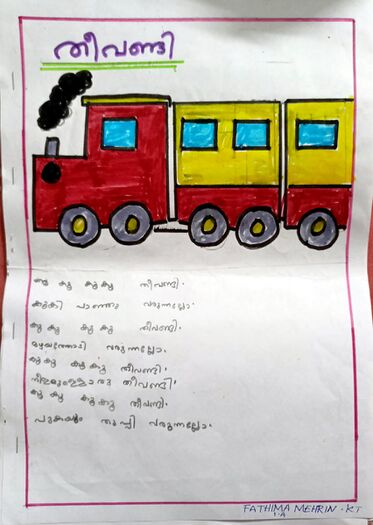 തീവണ്ടി
കൂ കൂ കൂകൂ തീവണ്ടി.
കൂകി പാഞ്ഞു വരുന്നല്ലോ.
കൂകൂ കൂകൂ തീവണ്ടി.
വരുന്നല്ലോ.
കൂകൂ കൂകൂ തീവണ്ടി.
നീളമുള്ളൊരു തീവണ്ടി.
കൂകൂ കൂകൂ തീവണ്ടി.
പുകയും തുപ്പി വരുന്നല്ലോ.
FATHIMA MEHRIN . KT
1.A